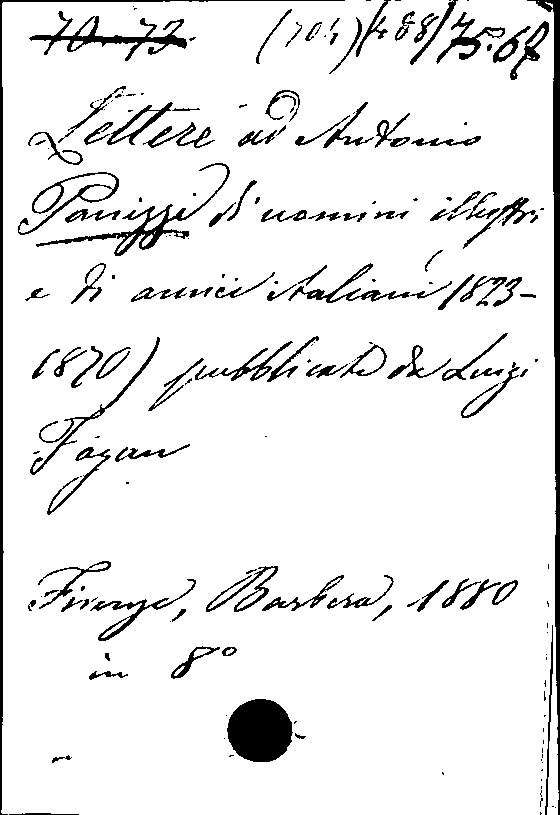 70.-73.
(704)(488) 75.6
Lettere ad Antonio
Panizzi di uomini illustri
e di amici italiani (1823-
1870) pubblicate da Luigi
Fagan
Firenze, Barbera, 1880
in 8°